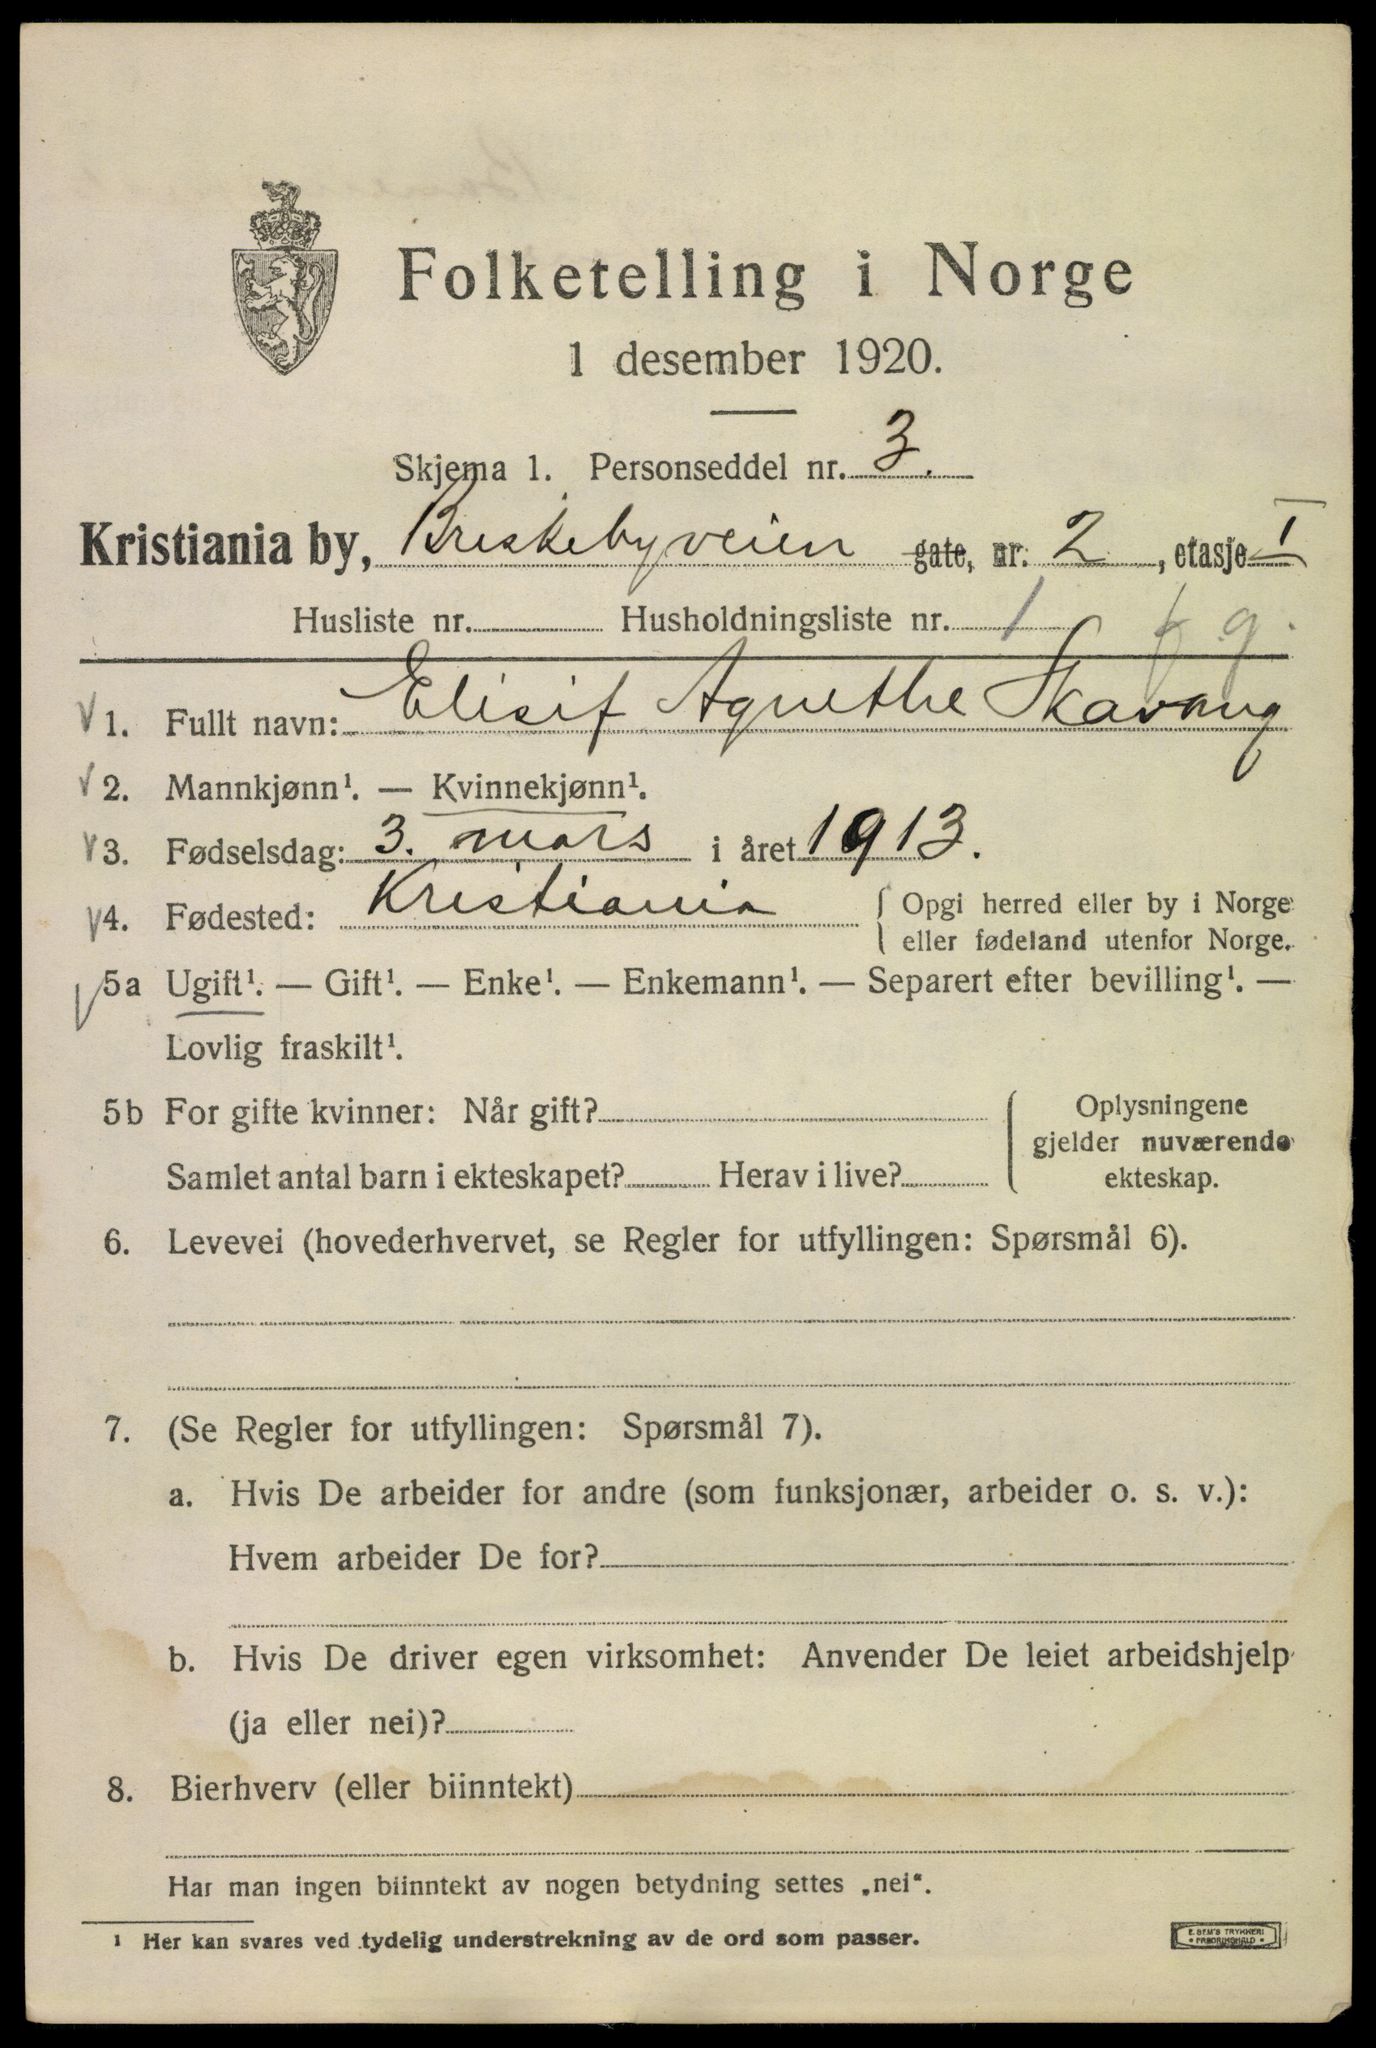 Folketelling i Norge
1 desember 1920.
Skjema 1. Personseddel nr. 3.
Kristiania by, Briskebyveien gate, nr. 2, etasje I
Husliste nr. Husholdningsliste nr. 1
1. Fullt navn: Elisif Agnethe Skavang
2. Mannkjønn¹. — Kvinnekjønn¹.
3. Fødselsdag: 3. mars i året 1913.
4. Fødested: Kristiania { Opgi herred eller by i Norge
eller fødeland utenfor Norge.
5a Ugift¹. — Gift¹. — Enke¹. — Enkemann¹. — Separert efter bevilling¹. —
Lovlig fraskilt¹.
5b For gifte kvinner: Når gift?
Samlet antal barn i ekteskapet? Herav i live?
Oplysningene
gjelder nuværende
ekteskap.
6. Levevei (hovederhvervet, se Regler for utfyllingen: Spørsmål 6).
7. (Se Regler for utfyllingen: Spørsmål 7).
a. Hvis De arbeider for andre (som funksjonær, arbeider o. s. v.):
Hvem arbeider De for?
b. Hvis De driver egen virksomhet: Anvender De leiet arbeidshjelp
(ja eller nei)?
8. Bierhverv (eller biinntekt)
Har man ingen biinntekt av nogen betydning settes „nei".
¹ Her kan svares ved tydelig understrekning av de ord som passer.
E. SEM'S TRYKKERI
• FREDRIKSHALD •